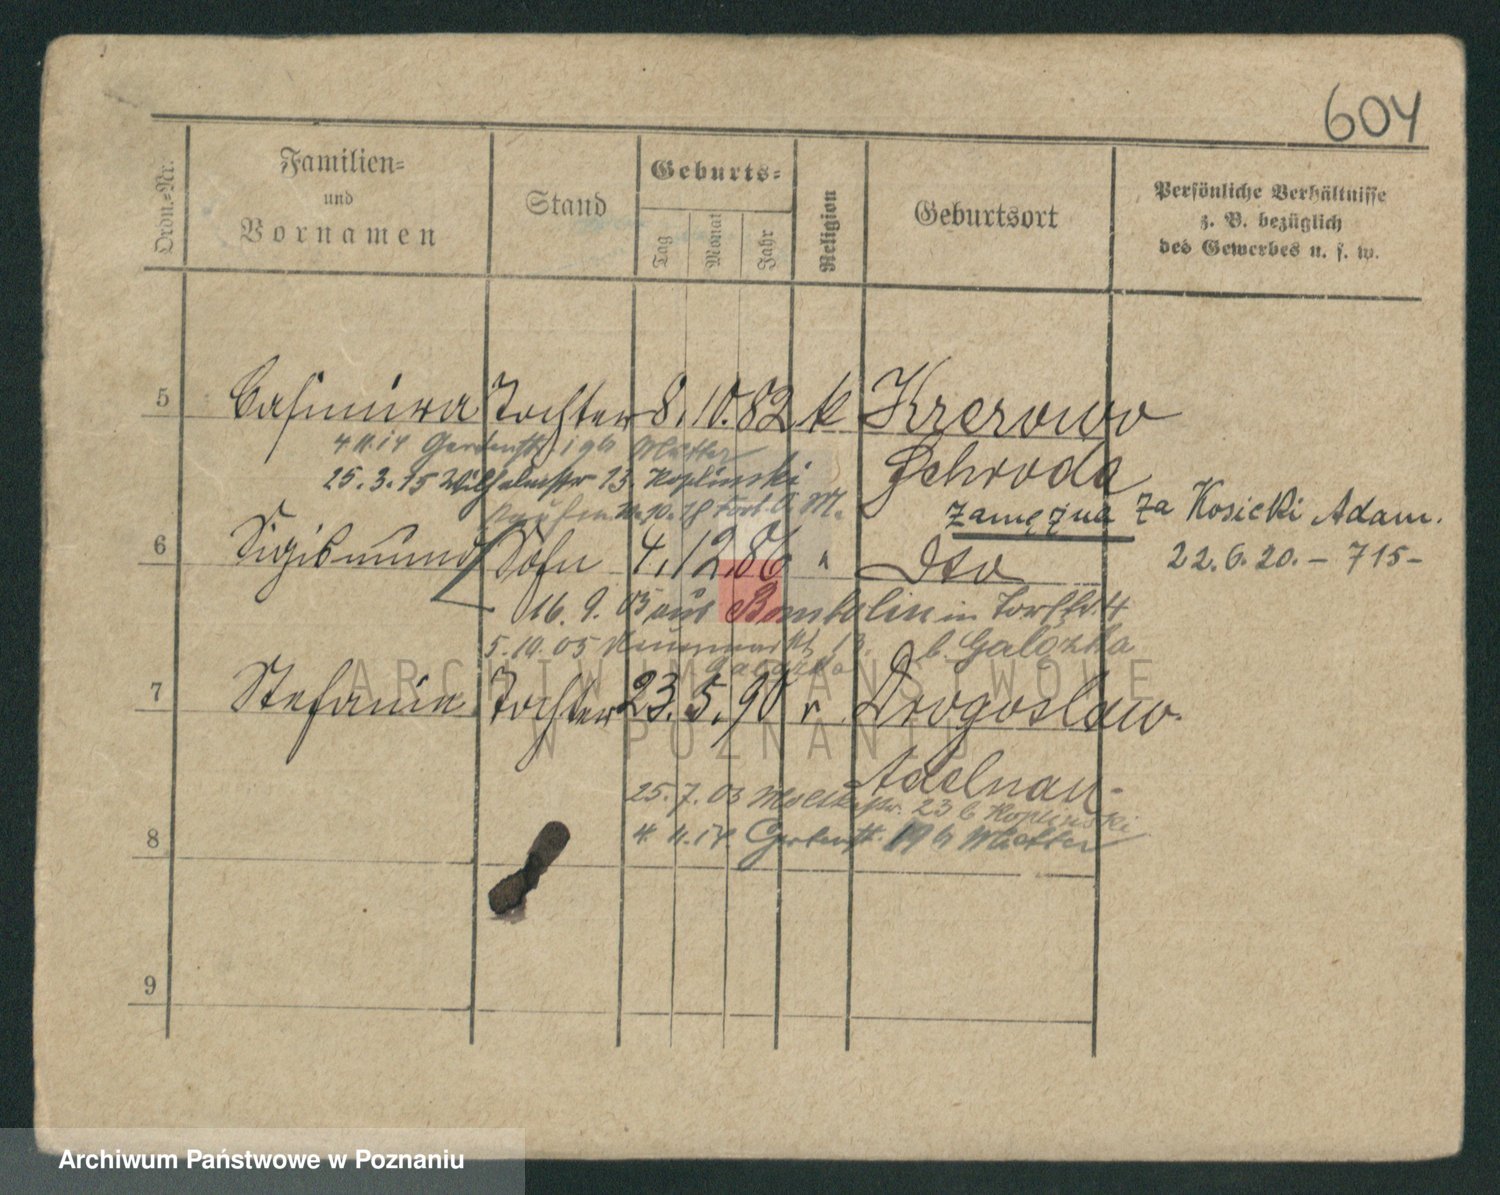 604
Ordn.-Nr.
Familien-
und
Vornamen
Stand
Geburts-
Tag
Monat
Jahr
Religion
Geburtsort
Persönliche Verhältnisse
z. B. bezüglich
des Gewerbes u. s. w.
5 Casimira Tochter 8. 10. 82 k Krerowo
4.11.14 Gartenstr. 19 b Mutter
Schroda
25.3.15 Wilhelmstr 13. Koplinski
zamężna za Kosicki Adam.
22.6.20. – 715 –
6 Sigismund Sohn 4. 12. 86 " Dto
16. 9. 05 aus in Torfstr. 4
5. 10. 05 Neuermarkt 13. b. Galozka
7 Stefanie Tochter 23. 5. 90 r Drogoslaw.
Adelnau.
25. 7. 03 Moltkestr. 23 b Koplinski
4. 11. 14 Gartenstr. 19 b Mutter
8
9
ARCHIWUM PAŃSTWOWE
W POZNANIU
Archiwum Państwowe w Poznaniu